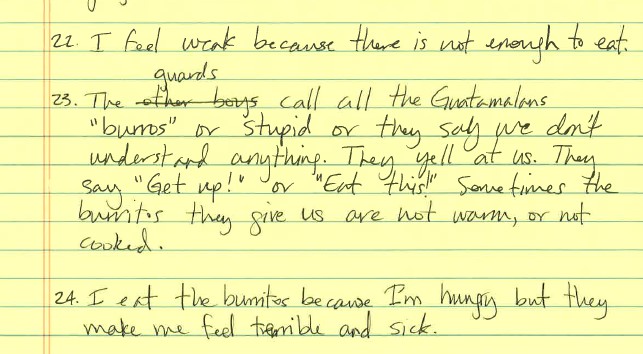 22. I feel weak because there is not enough to eat.
guards
23. The other boys call all the Guatamalans
"burros" or stupid or they say we don't
understand anything. They yell at us. They
say "Get up!" or "Eat this!" Sometimes the
burritos they give us are not warm, or not
cooked.
24. I eat the burritos because I'm hungry but they
make me feel terrible and sick.